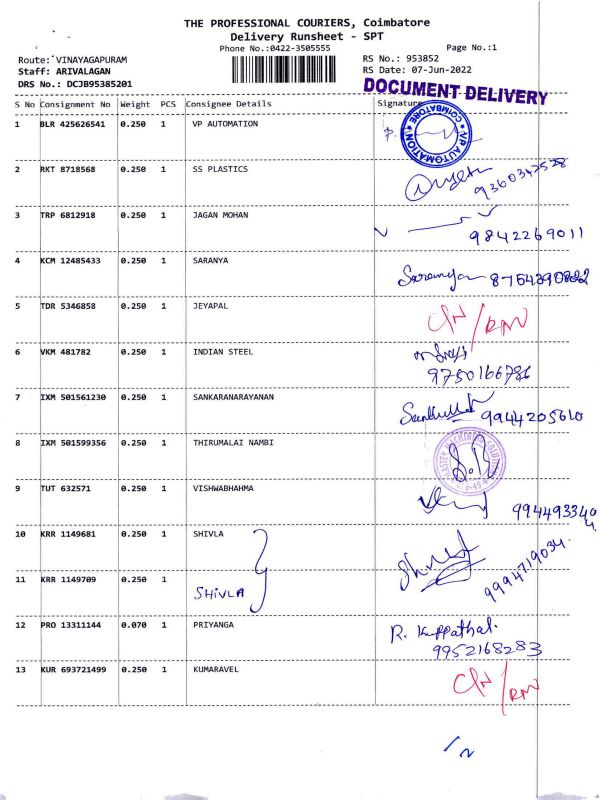 THE PROFESSIONAL COURIERS, Coimbatore
Delivery Runsheet - SPT
Phone No.:0422-3505555 Page No.:1
Route: VINAYAGAPURAM RS No.: 953852
Staff: ARIVALAGAN RS Date: 07-Jun-2022
DRS No.: DCJB95385201
DOCUMENT DELIVERY
S No Consignment No Weight PCS Consignee Details Signature
1 BLR 425626541 0.250 1 VP AUTOMATION
VP AUTOMATION COIMBATORE
2 RKT 8718568 0.250 1 SS PLASTICS
3 TRP 6812918 0.250 1 JAGAN MOHAN
9842269011
4 KCM 12485433 0.250 1 SARANYA
Saranya
5 TDR 5346858 0.250 1 JEYAPAL
C/N/RMV
6 VKM 481782 0.250 1 INDIAN STEEL
9750166786
7 IXM 501561230 0.250 1 SANKARANARAYANAN
9944205610
8 IXM 501599356 0.250 1 THIRUMALAI NAMBI
9 TUT 632571 0.250 1 VISHWABHAHMA
9944933404
10 KRR 1149681 0.250 1 SHIVLA
9994719034.
11 KRR 1149709 0.250 1 SHIVLA
12 PRO 13311144 0.070 1 PRIYANGA
R. Kuppathal.
9952168283
13 KUR 693721499 0.250 1 KUMARAVEL
C/N/RMV